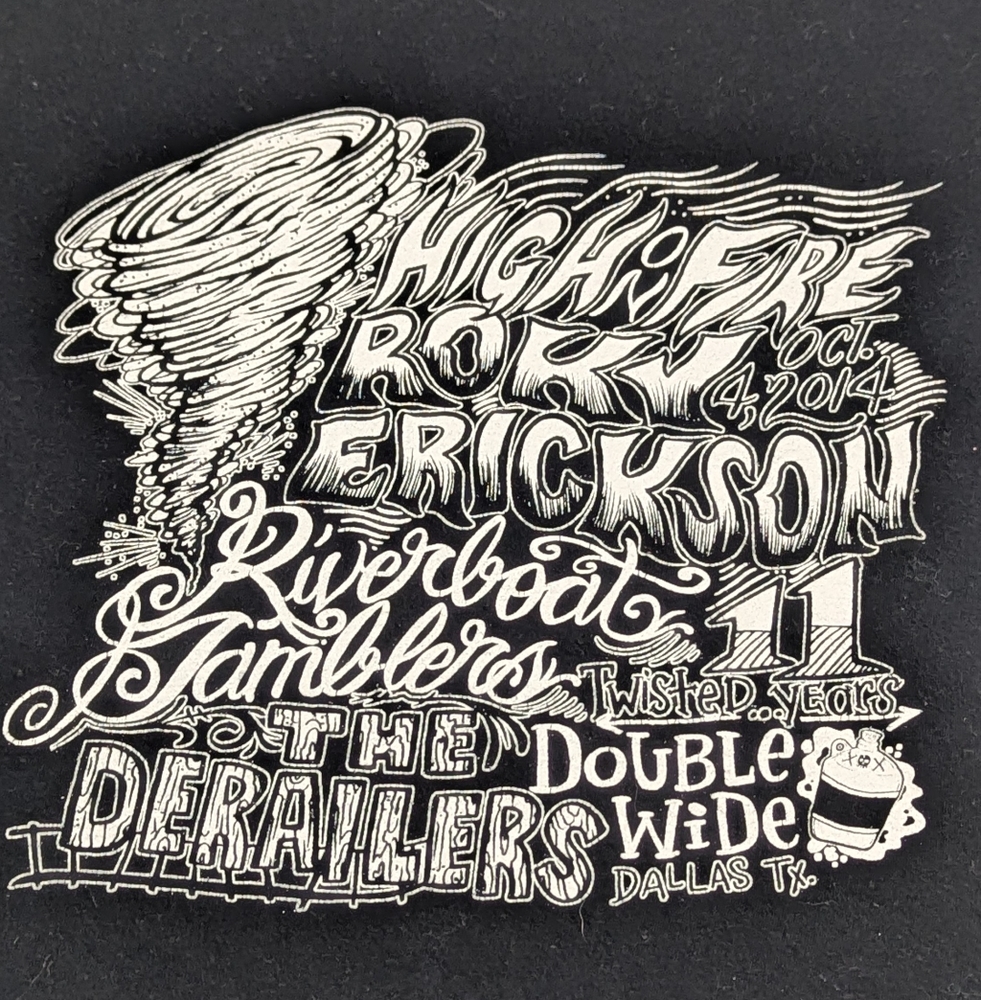 HIGH ON FIRE
ROKY
OCT.
4, 2014
ERICKSON
Riverboat
Gamblers
11
Twisted...years
THE
DERAILERS
DOUBLe
WiDe
DALLAS TX.